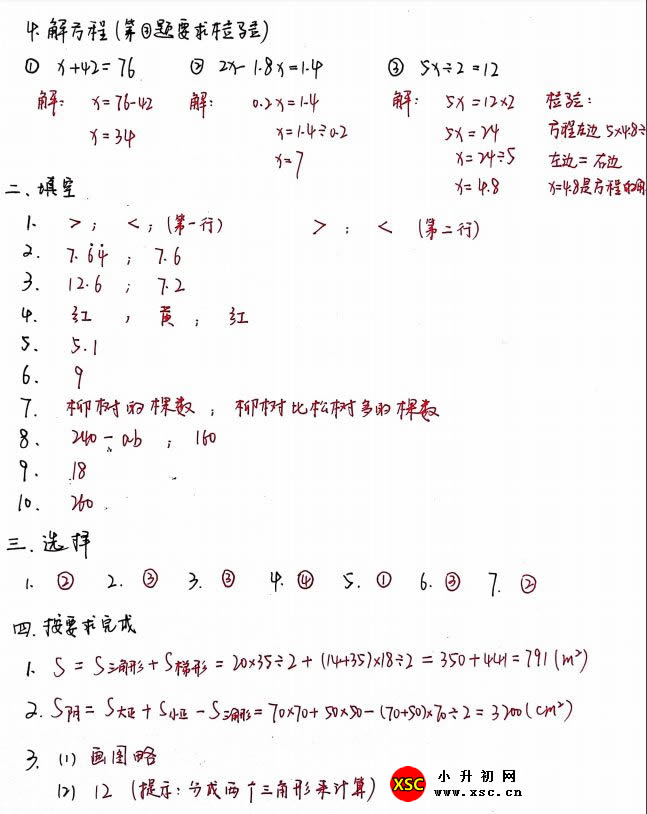 4.解方程(第③题要求检验)
① x+42=76 ② 2x-1.8x=1.4 ③ 5x÷2=12
解: x=76-42 解: 0.2x=1.4 解: 5x=12×2 检验:
x=34 x=1.4÷0.2 5x=24 方程左边 5×4.8÷
x=7 x=24÷5 左边=右边
x=4.8 x=4.8是方程的
二、填空
1. >; <;(第一行) >; < (第二行)
2. 7.6̇4̇ ; 7.6
3. 12.6 ; 7.2
4. 红 , 黄 ; 红
5. 5.1
6. 9
7. 柳树的棵数 ; 柳树比松树多的棵数
8. 240-ab ; 160
9. 18
10. 260
三.选择
1. ② 2. ③ 3. ③ 4. ④ 5. ① 6. ③ 7. ②
四.按要求完成
1. S=S三角形+S梯形=20×35÷2+(14+35)×18÷2=350+441=791(m²)
2. S阴=S大正+S小正-S三角形=70×70+50×50-(70+50)×70÷2=3200(cm²)
3. (1) 画图略
(2) 12 (提示:分成两个三角形来计算)
XSC 小升初网
www.xsc.cn